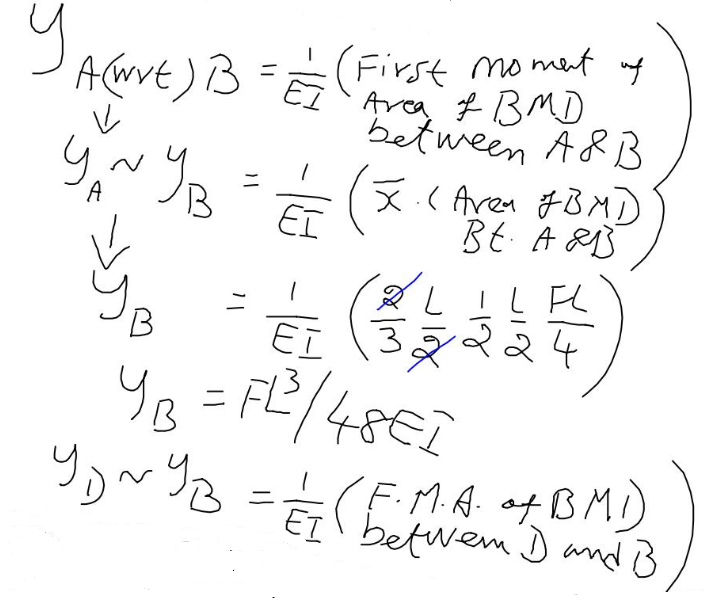 y A(wrt) B = 1/EI (First moment of
Area of BMD
between A&B)
↓
y_A ~ y_B = 1/EI (x̄ . (Area of BMD)
Bt. A&B)
↓
y_B = 1/EI (2/3 L/2 1/2 L/2 FL/4)
y_B = FL³/48EI
y_D ~ y_B = 1/EI (F.M.A. of BMD
between D and B)